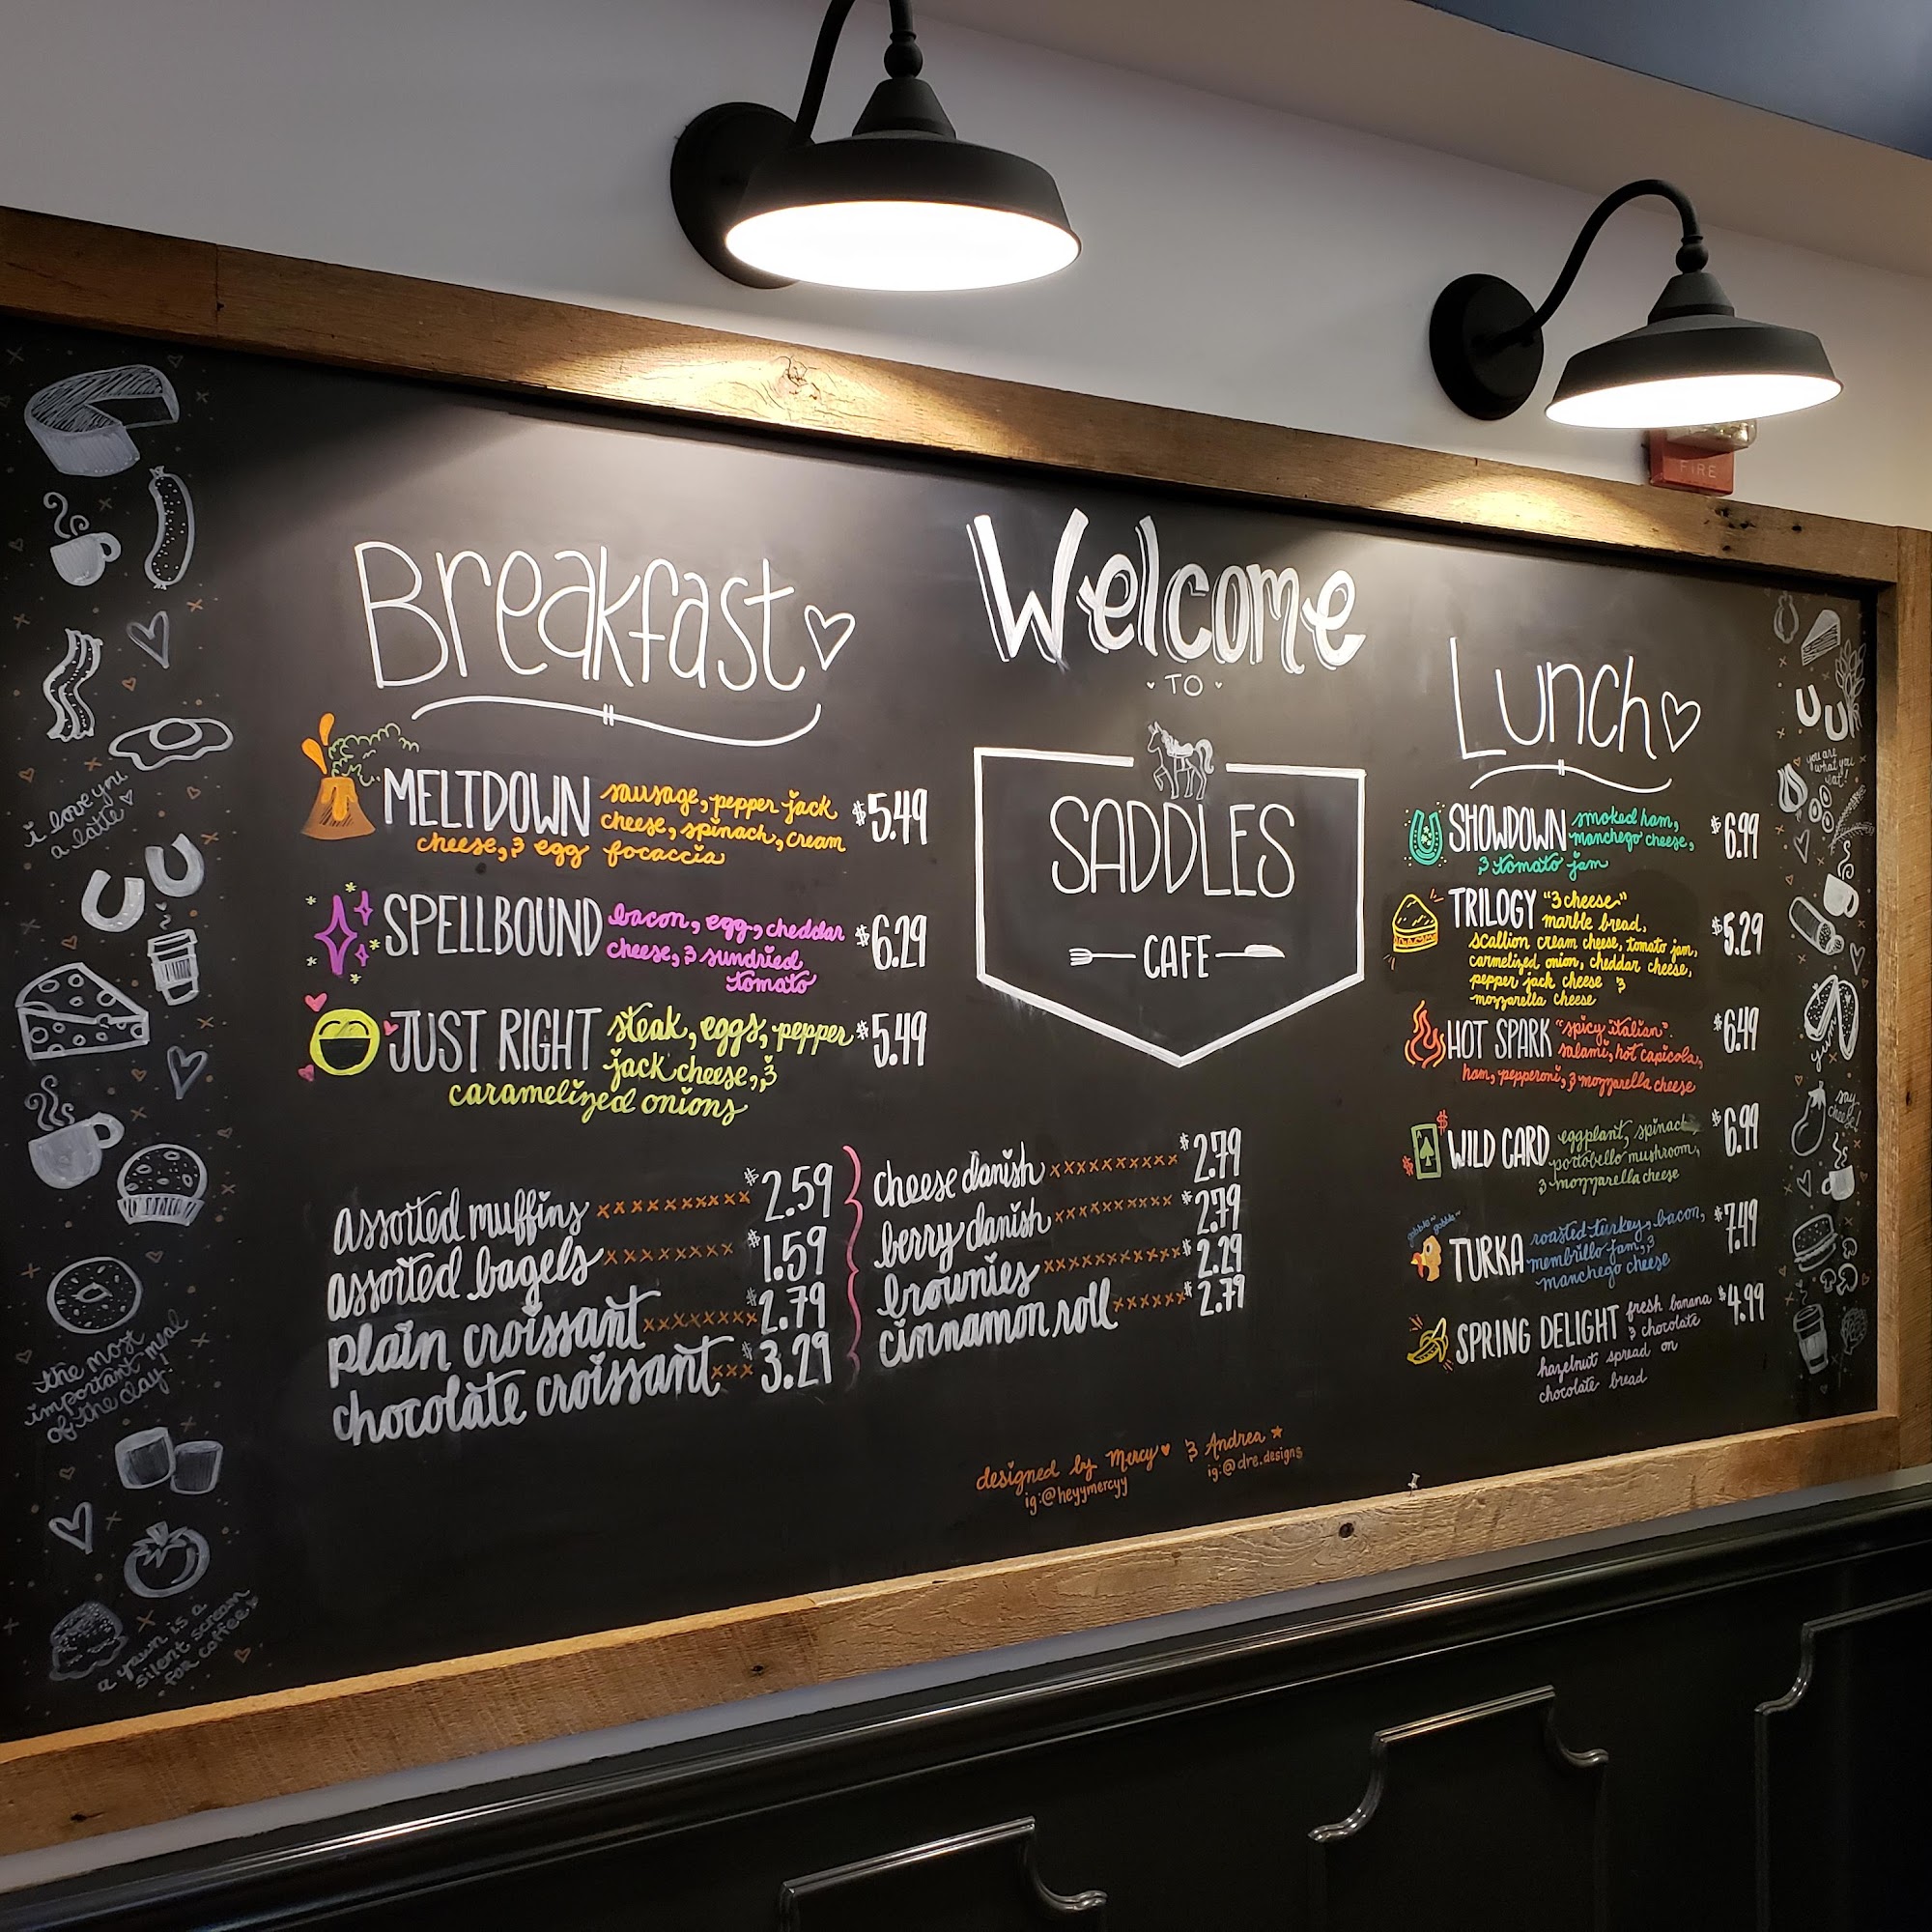 FIRE
Breakfast
MELTDOWN sausage, pepper jack
cheese, spinach, cream
cheese, & egg focaccia
$5.49
SPELLBOUND bacon, egg, cheddar
cheese, & sundried
tomato
$6.29
JUST RIGHT steak, eggs, pepper
jack cheese, &
caramelized onions
$5.49
assorted muffins xxxxxxxxxx $2.59
assorted bagels xxxxxxxxx $1.59
plain croissant xxxxxxxx $2.79
chocolate croissant xxx $3.29
cheese danish xxxxxxxxxx $2.79
berry danish xxxxxxxxx $2.79
brownies xxxxxxxxxxx $2.29
cinnamon roll xxxxxx $2.79
Welcome
TO
SADDLES
CAFE
designed by Mercy & Andrea
ig:@heyymercyy
ig:@dre.designs
Lunch
SHOWDOWN smoked ham,
manchego cheese,
& tomato jam
$6.99
TRILOGY "3 cheese"
marble bread,
scallion cream cheese, tomato jam,
carmelized onion, cheddar cheese,
pepper jack cheese &
mozzarella cheese
$5.29
HOT SPARK "spicy italian"
salami, hot capicola,
ham, pepperoni, & mozzarella cheese
$6.49
WILD CARD eggplant, spinach,
portobello mushroom,
& mozzarella cheese
$6.99
gobble gobble
TURKA roasted turkey, bacon,
membrillo jam, &
manchego cheese
$7.49
SPRING DELIGHT fresh banana
& chocolate
hazelnut spread on
chocolate bread
$4.99
i love you
a latte
the most
important meal
of the day!
a yawn is a
silent scream
for coffee
you are
what you
eat!
yum
say
cheese!